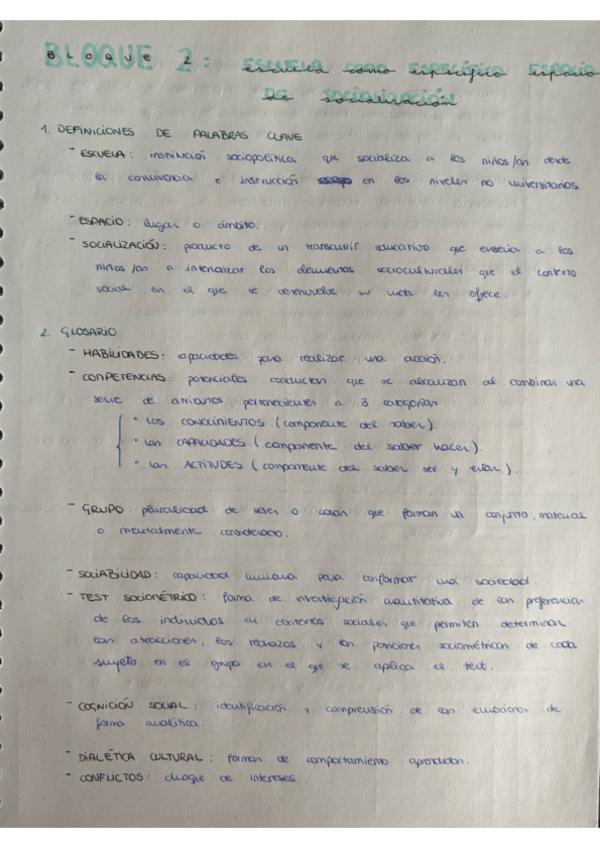 BLOQUE 2: escuela como específico espacio
de socialización
1. DEFINICIONES DE PALABRAS CLAVE
- ESCUELA: institución sociopolítica que socializa a los niños/as desde
la convivencia e instrucción en los niveles no universitarios.
- ESPACIO: lugar o ámbito.
- SOCIALIZACIÓN: producto de un transcurrir educativo que enseña a los
niños/as a internalizar los elementos socioculturales que el contexto
social en el que se desenvuelve su vida les ofrece.
2. GLOSARIO
- HABILIDADES: capacidades para realizar una acción.
- COMPETENCIAS: potenciales conductas que se alcanzan al combinar una
serie de pertenecientes a 3 categorías
• Los CONOCIMIENTOS (componente del saber).
• Las CAPACIDADES (componente del saber hacer).
• Las ACTITUDES (componente del saber ser y estar).
- GRUPO: pluralidad de seres o cosas que forman un conjunto, material
o mentalmente considerado.
- SOCIABILIDAD: capacidad humana para conformar una sociedad
- TEST SOCIOMÉTRICO: forma de investigación cuantitativa de las preferencias
de los individuos en contextos sociales que permiten determinar
las atracciones, los rechazos y las posiciones sociométricas de cada
sujeto en el grupo en el que se aplica el test.
- COGNICIÓN SOCIAL: identificación y comprensión de las emociones de
forma analítica.
- DIALÉTICA CULTURAL: formas de comportamiento aprendidas.
- CONFLICTOS: choque de intereses